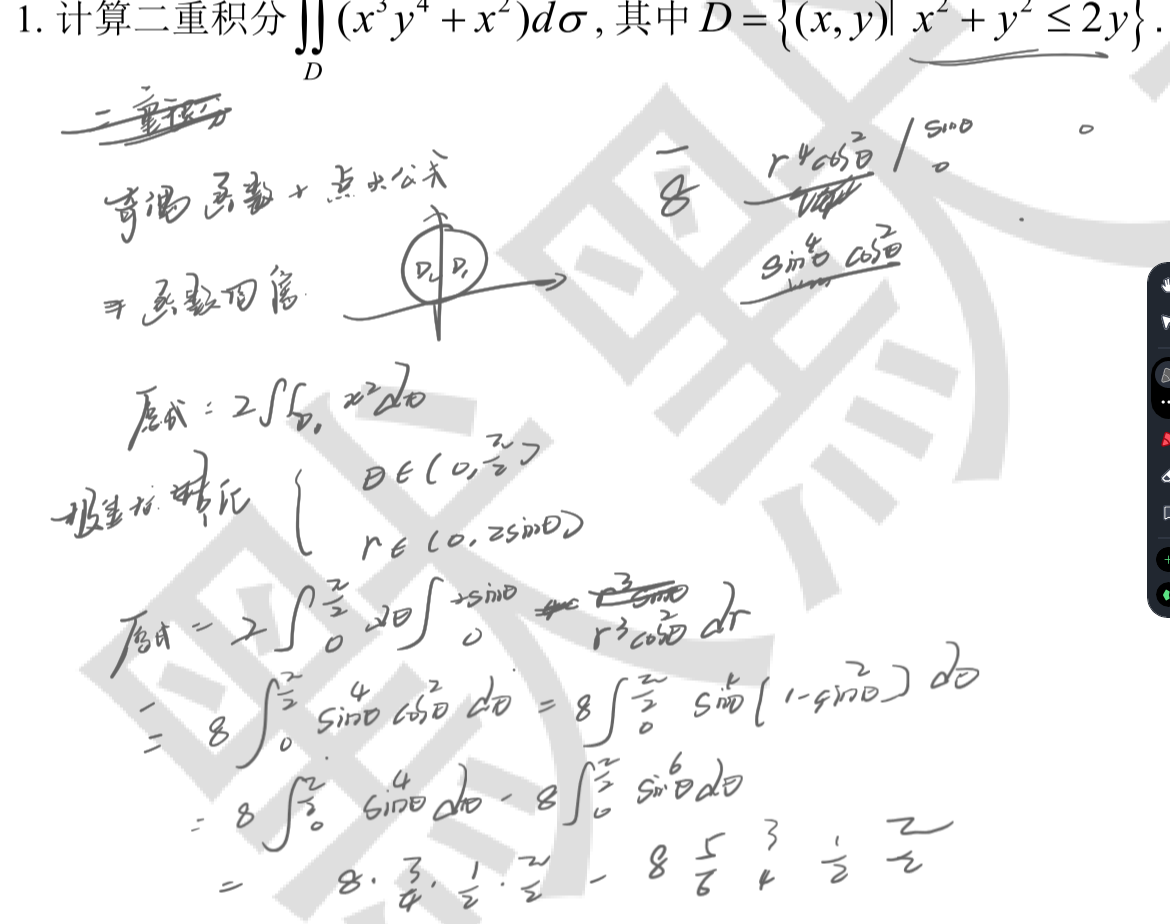 1. 计算二重积分 ∬_D (x³y⁴ + x²)dσ , 其中 D = {(x, y)| x² + y² ≤ 2y} .
奇偶函数 + 点火公式
D₂ D₁
原式 = 2∬_{D₁} x²dσ
极坐标转化 { θ ∈ (0, π/2)
r ∈ (0, 2sinθ)
原式 = 2∫₀^{π/2} dθ ∫₀^{2sinθ} r³cos²θ dr
= 8∫₀^{π/2} sin⁴θ cos²θ dθ = 8∫₀^{π/2} sin⁴θ(1-sin²θ) dθ
= 8∫₀^{π/2} sin⁴θ dθ - 8∫₀^{π/2} sin⁶θ dθ
= 8 · 3/4 · 1/2 · π/2 - 8 5/6 3/4 1/2 π/2
8 r⁴cos²θ | sinθ 0
0
sin⁴θ cos²θ